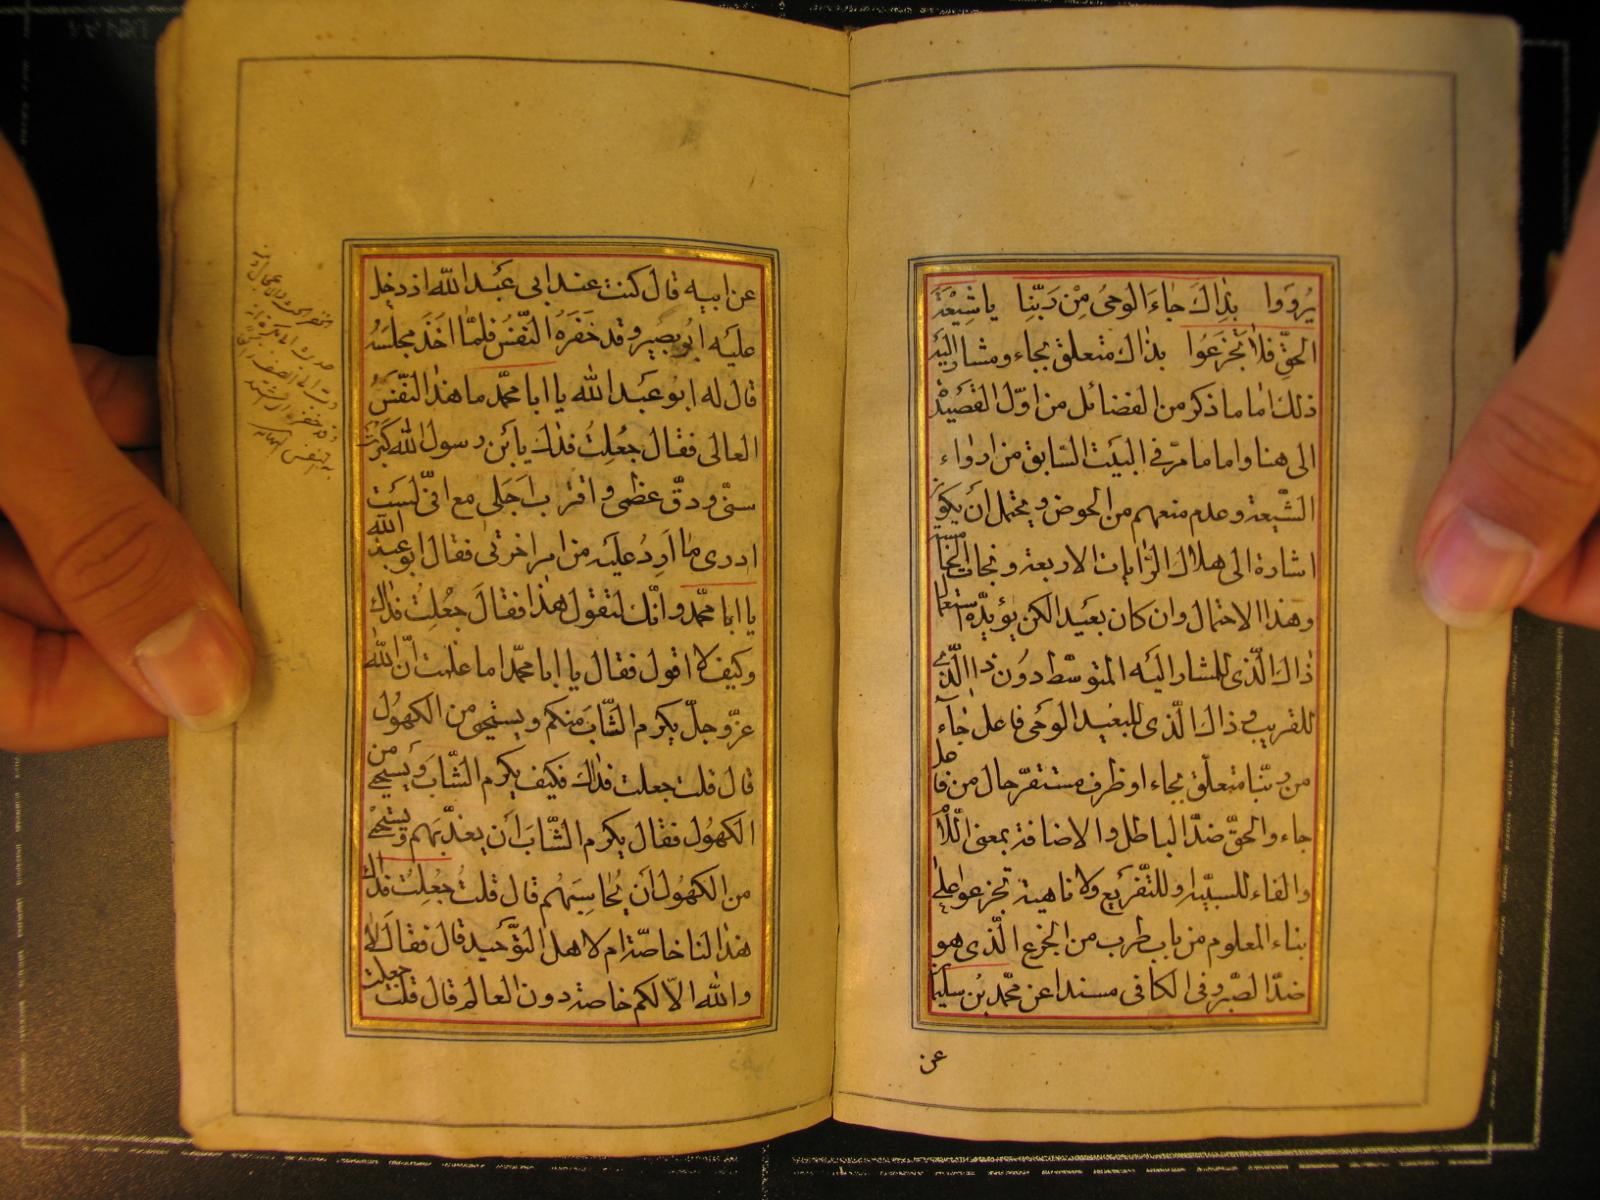 يُرْوَوا بذاكَ جاءَ الوَحىُ مِنْ رَبّنا يا شِيْعَةَ
الحقِّ فلا تَجْزَعُوا بذاك متعلق بجاء ومشار اليه
ذلك اما ما ذكر من الفضائل من اوّل القصيدة
الى هنا واما ما مرّ فى البيت السّابق من ارواء
الشّيعة وعدم منعهم من الحوض ويحتمل أن يكون
اشارة الى هلاك الرّايات الاربعة ونجات الخامسة
وهذا الاحتمال وان كان بعيد الكن يؤيّده استعمال
ذاك الّذى للمشار اليه المتوسّط دون ذا الّذى
للقريب وذاك الّذى للبعيد الوحى فاعل جاء
من ربّنا متعلّق بجاء او ظرف مستقرّ حال من فاعل
جاء والحقّ ضدّ الباطل والاضافة بمعنى اللّام
والفاء للسببيّة وللتّفريع ولا ناهية تجزعوا على
بناء المعلوم من باب طرب من الجزع الّذى هو
ضدّ الصّبر وفى الكافى مسندا عن محمّد بن سليمان
عن
عن ابيه قال كنت عند ابى عَبد الله اذ دخل
عليه ابو بصير وقد حَفَزَهُ النَّفَسُ فلمّا اخَذَ مجلسَهُ
قال له ابو عَبد الله يا ابا محمّد ما هذا النَّفَسُ
العالى فقال جعِلتُ فداك يا ابن رسول الله كَبُرَ
سنّى ودقّ عظمى واقترب اجَلى مع انّى لَستُ
ادرى ما اَرِدُ عليَه من امر اخرتى فقال ابو عبد الله
يا ابا محمّد وانّك لتقول هذا فقالَ جعُلِتُ فداك
وكيف لا اقول فقال يا ابا محمّد اما علمت اَنّ الله
عزّوجلّ يكرم الشّابَ منكم ويستحيى من الكهُول
قال قلت جعلت فداك فكيف يكرم الشّابَ ويستحيى من
الكهُول فقال يكرم الشّابَ اَن يعذّبَهم ويستحيى
من الكهُول اَن يُحاسِبَهُم قال قلتُ جُعِلتُ فداك
هذا لنا خاصّة ام لاهل التّوحَيد قال فقال لا
والله الّا لكم خاصة دون العالم قال قلت جعلت